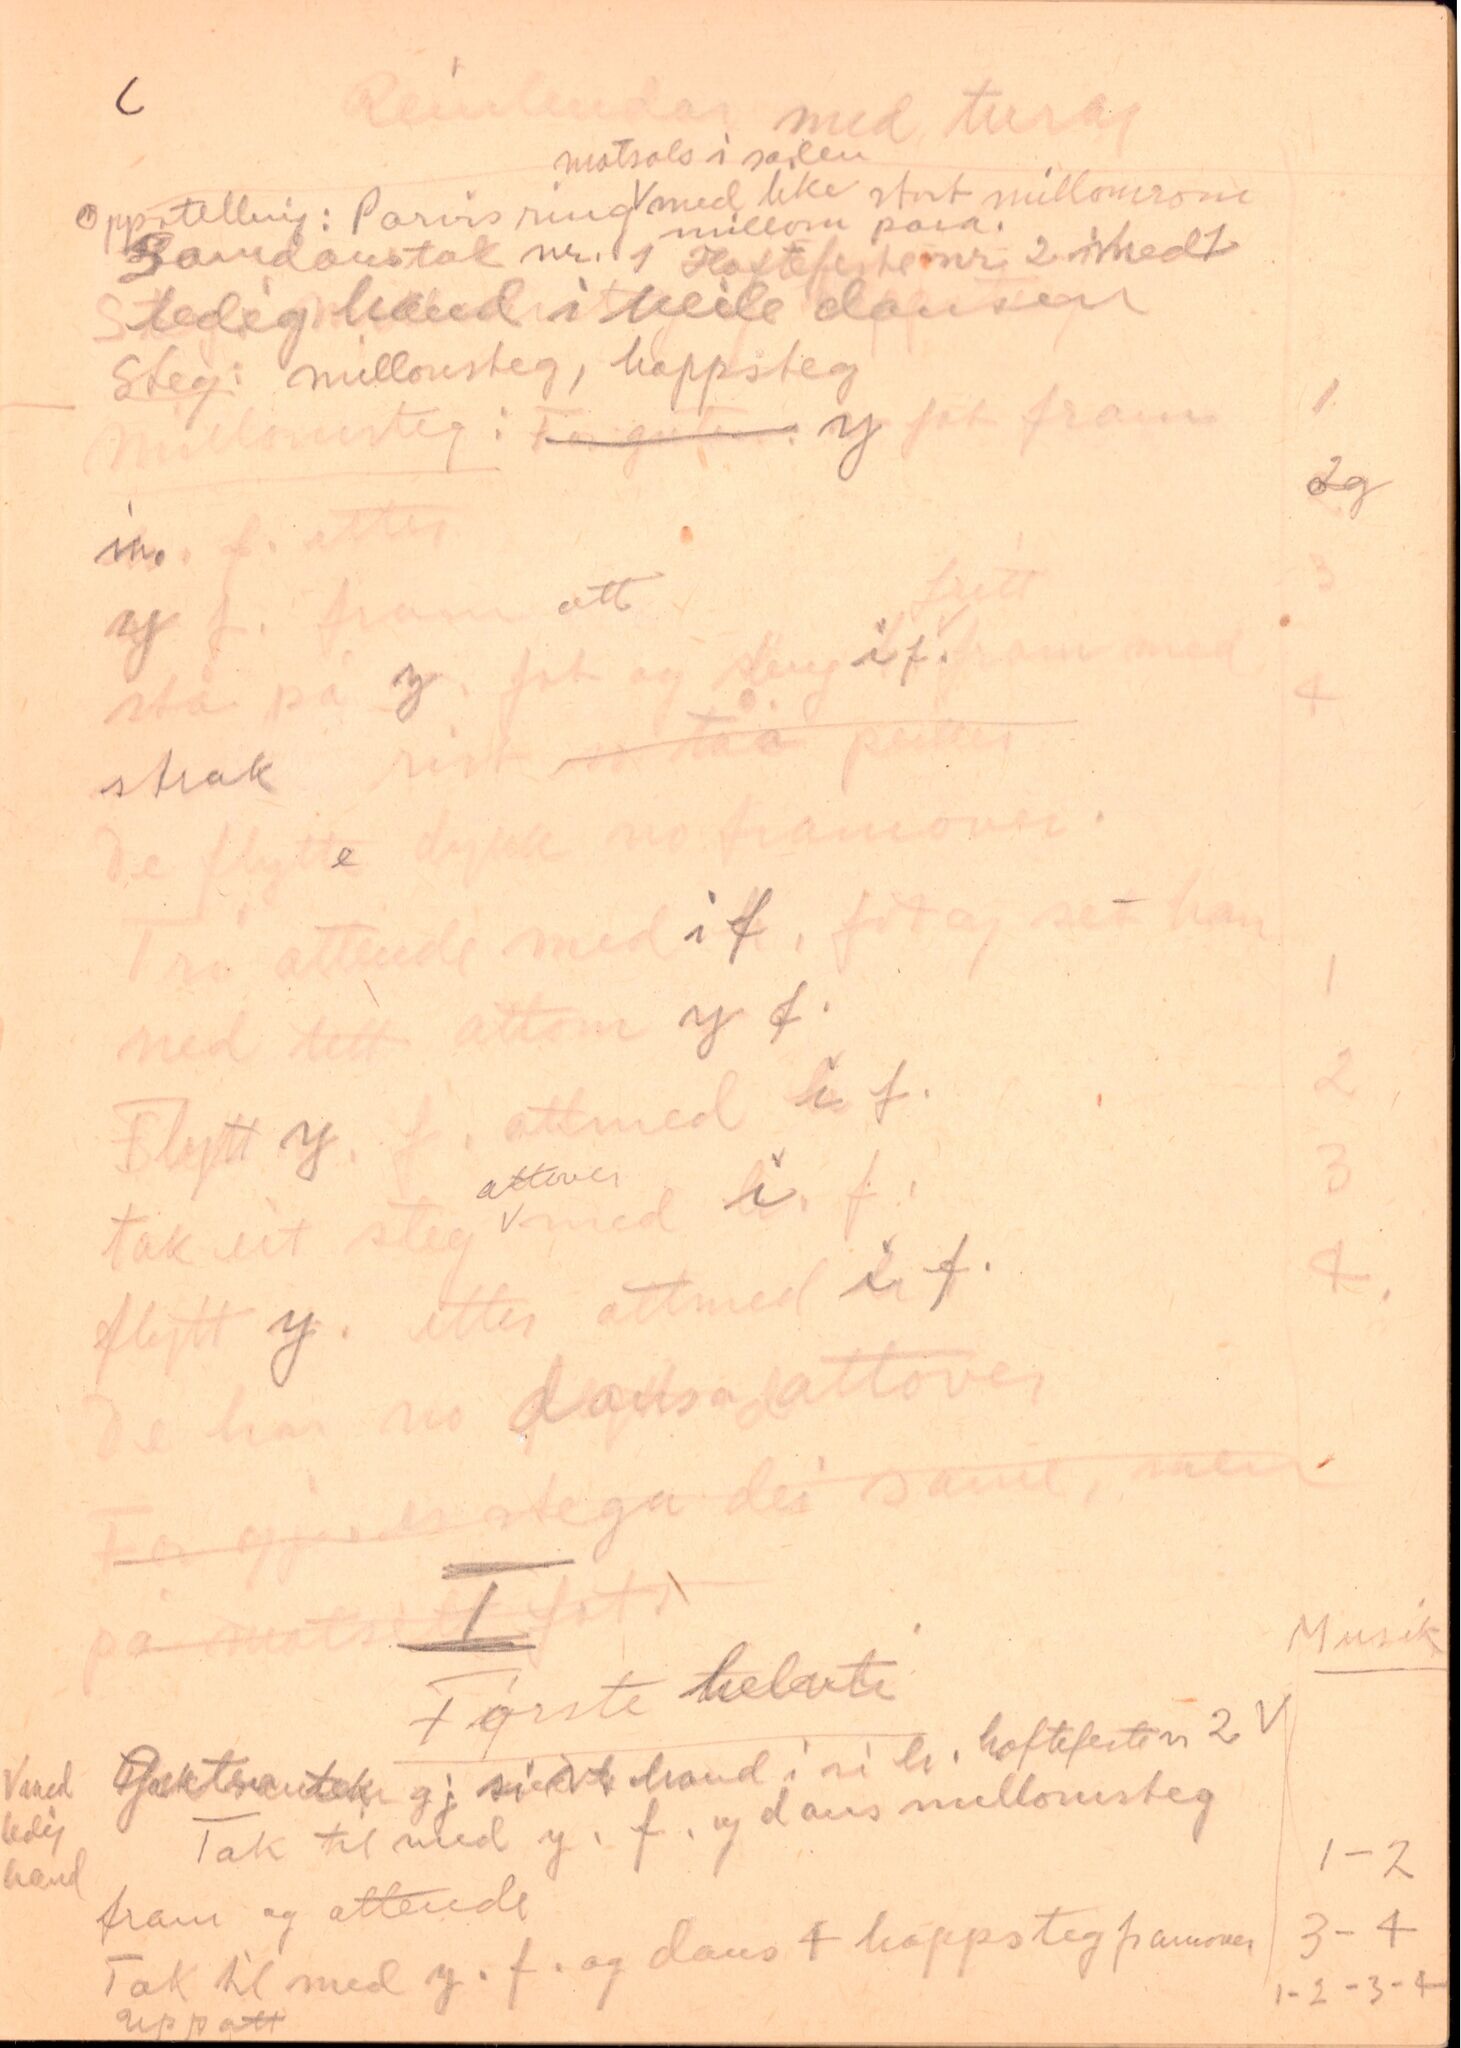 Reinlendar med turar
motsols i soilen
Oppstelling: Parvis ring med like stort millomrom
millom para.
Samdanstak nr. 1 Hoftefeste nr. 2 med
ledig hand i heile dansen
Steg: millomsteg, hoppsteg
Millomsteg: y fot fram 1
in. f. etter 2
y f. fram att 3
fritt
stå på y. fot og sleng i f. fram med 4
strak rist so tåa peikar
De flytte dykk no framover.
Trø attende med i f. fot og set han
ned tett attom y f. 1
Flytt y. f. attmed i f. 2
attover
tak eit steg med i. f. 3
flytt y. etter attmed i f. 4.
De har no dansa attover
For gjenta stega dei same, men
på motsett fot.
I
Musik
Første helvti
hand i si h. hoftefeste nr 2
V med
ledig
hand
Tak til med y. f. og dans millomsteg
fram og attende 1-2
Tak til med y. f. og dans 4 hoppsteg framover 3-4
1-2-3-4
upp att